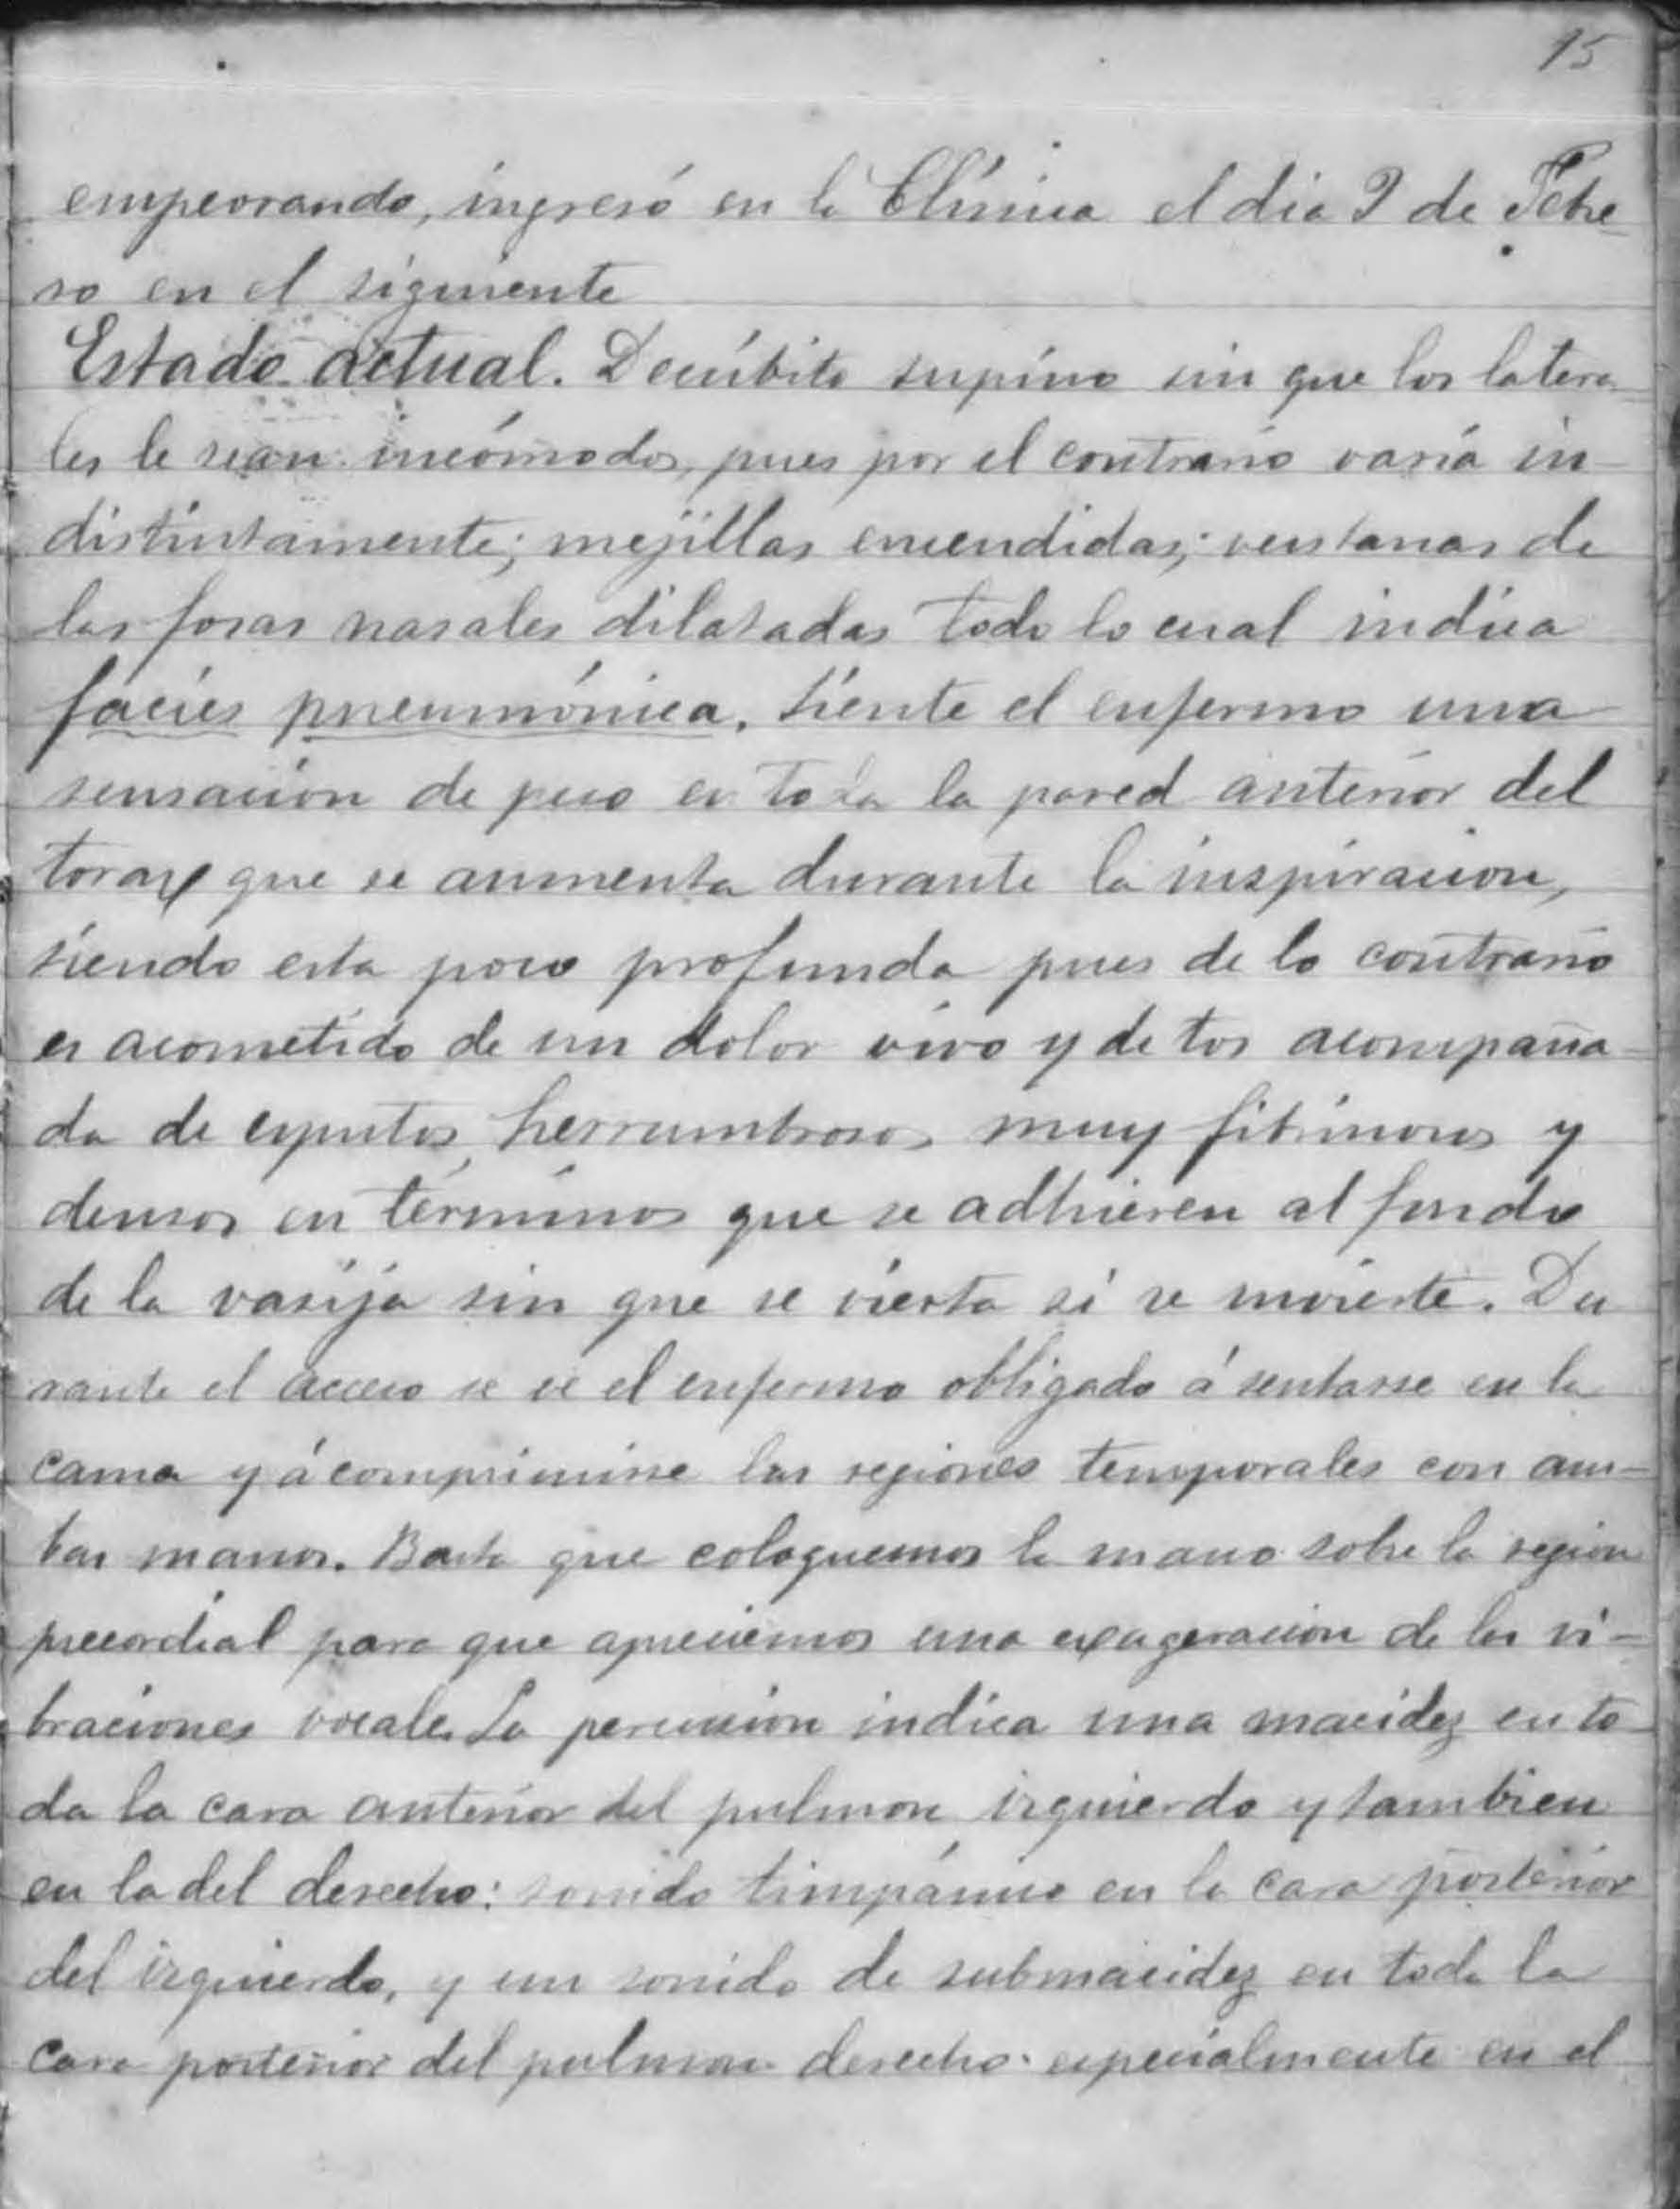 15
empeorando, ingresó en la Clínica el dia 9 de Febre
ro en el siguiente
Estado actual. Decúbito supino sin que los latera
les le sean incómodos, pues por el contrario varía in-
distintamente; mejillas encendidas; ventanas de
las fosas nasales dilatadas todo lo cual indica
facies pneumónica. Siente el enfermo una
sensación de peso en toda la pared anterior del
torax que se aumenta durante la inspiracion,
siendo esta poco profunda pues de lo contrario
es acometido de un dolor vivo y de tos acompaña
da de esputos herrumbrosos muy fibrinosos y
densos en términos que se adhieren al fondo
de la vasija sin que se vierta si se invierte. Du
rante el acceso se ve el enfermo obligado á sentarse en la
cama y á comprimirse las regiones temporales con am-
bas manos. Basta que coloquemos la mano sobre la region
precordial para que apreciemos una exageracion de las vi-
braciones vocales. La percusion indica una macidez en to
da la cara anterior del pulmon izquierdo y tambien
en la del derecho: sonido timpánico en la cara posterior
del izquierdo, y un sonido de submacidez en toda la
cara posterior del pulmon derecho especialmente en el